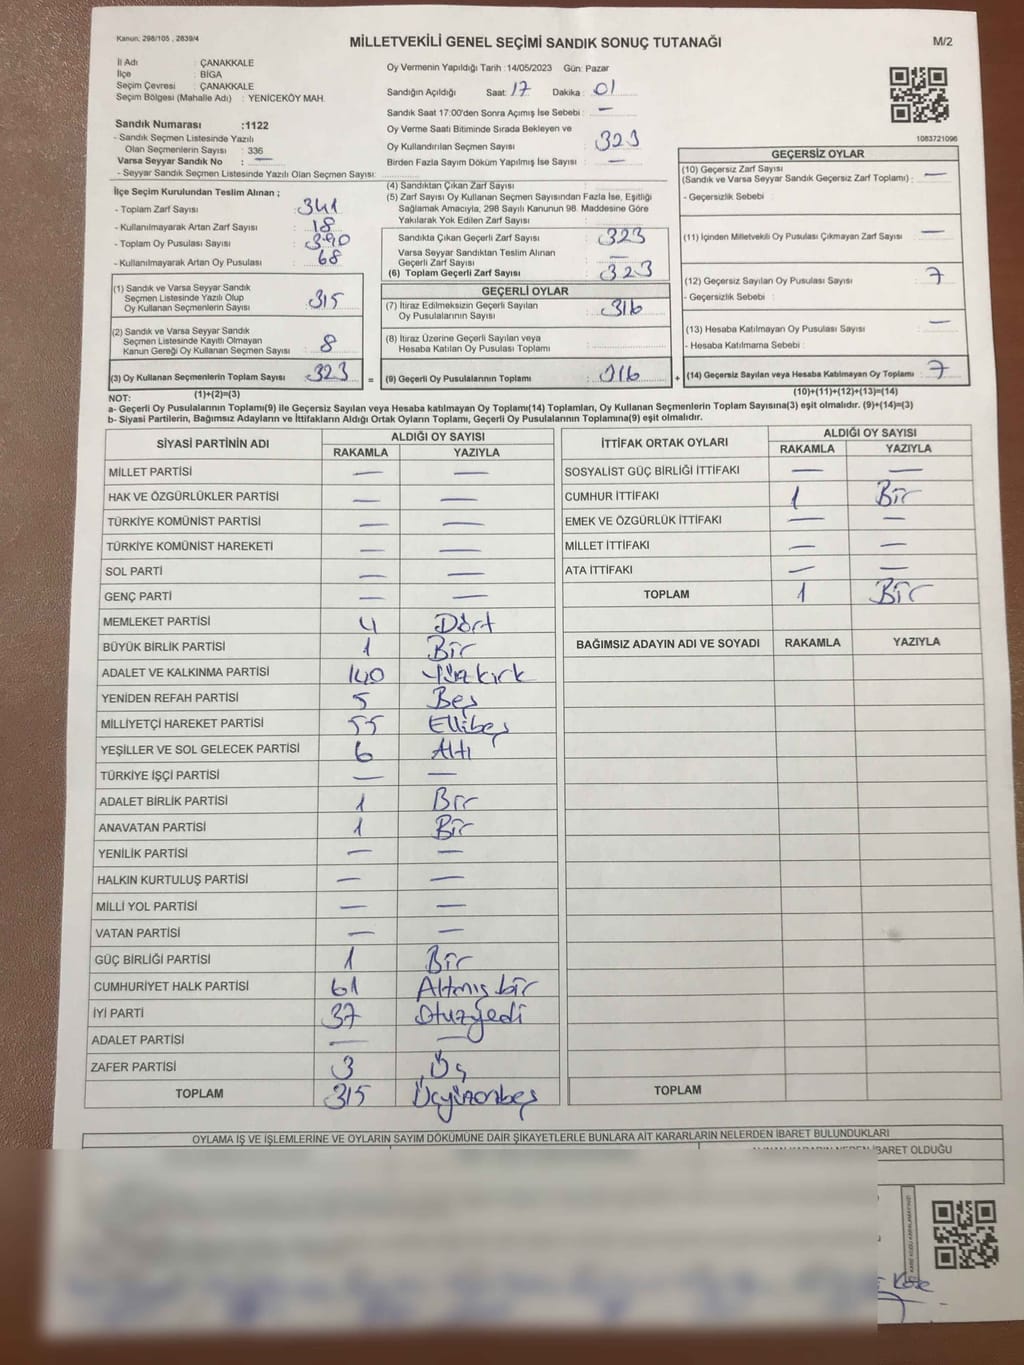 Kanun: 298/105 , 2839/4
MİLLETVEKİLİ GENEL SEÇİMİ SANDIK SONUÇ TUTANAĞI
M/2
İl Adı : ÇANAKKALE
İlçe : BİGA
Seçim Çevresi : ÇANAKKALE
Seçim Bölgesi (Mahalle Adı) : YENİCEKÖY MAH.
Sandık Numarası :1122
- Sandık Seçmen Listesinde Yazılı
Olan Seçmenlerin Sayısı : 336
Varsa Seyyar Sandık No : —
- Seyyar Sandık Seçmen Listesinde Yazılı Olan Seçmen Sayısı:
Oy Vermenin Yapıldığı Tarih :14/05/2023 Gün: Pazar
Sandığın Açıldığı Saat: 17 Dakika : 01
Sandık Saat 17:00'den Sonra Açımış İse Sebebi : —
Oy Verme Saati Bitiminde Sırada Bekleyen ve
Oy Kullandırılan Seçmen Sayısı : 323
Birden Fazla Sayım Döküm Yapılmış İse Sayısı : —
1083721096
İlçe Seçim Kurulundan Teslim Alınan ;
- Toplam Zarf Sayısı : 341
- Kullanılmayarak Artan Zarf Sayısı : 18
- Toplam Oy Pusulası Sayısı : 390
- Kullanılmayarak Artan Oy Pusulası : 68
(1) Sandık ve Varsa Seyyar Sandık
Seçmen Listesinde Yazılı Olup
Oy Kullanan Seçmenlerin Sayısı : 315
(2) Sandık ve Varsa Seyyar Sandık
Seçmen Listesinde Kayıtlı Olmayan
Kanun Gereği Oy Kullanan Seçmen Sayısı : 8
(3) Oy Kullanan Seçmenlerin Toplam Sayısı : 323
(4) Sandıktan Çıkan Zarf Sayısı :
(5) Zarf Sayısı Oy Kullanan Seçmen Sayısından Fazla İse, Eşitliği
Sağlamak Amacıyla, 298 Sayılı Kanunun 98. Maddesine Göre
Yakılarak Yok Edilen Zarf Sayısı :
Sandıkta Çıkan Geçerli Zarf Sayısı : 323
Varsa Seyyar Sandıktan Teslim Alınan
Geçerli Zarf Sayısı : —
(6) Toplam Geçerli Zarf Sayısı : 323
GEÇERLİ OYLAR
(7) İtiraz Edilmeksizin Geçerli Sayılan
Oy Pusulalarının Sayısı : 316
(8) İtiraz Üzerine Geçerli Sayılan veya
Hesaba Katılan Oy Pusulası Toplamı :
= (9) Geçerli Oy Pusulalarının Toplamı : 316
GEÇERSİZ OYLAR
(10) Geçersiz Zarf Sayısı
(Sandık ve Varsa Seyyar Sandık Geçersiz Zarf Toplamı) : —
- Geçersizlik Sebebi :
(11) İçinden Milletvekili Oy Pusulası Çıkmayan Zarf Sayısı : —
(12) Geçersiz Sayılan Oy Pusulası Sayısı : 7
- Geçersizlik Sebebi :
(13) Hesaba Katılmayan Oy Pusulası Sayısı : —
- Hesaba Katılmama Sebebi :
+ (14) Geçersiz Sayılan veya Hesaba Katılmayan Oy Toplamı : 7
NOT: (1)+(2)=(3)
(10)+(11)+(12)+(13)=(14)
a- Geçerli Oy Pusulalarının Toplamı(9) ile Geçersiz Sayılan veya Hesaba katılmayan Oy Toplamı(14) Toplamları, Oy Kullanan Seçmenlerin Toplam Sayısına(3) eşit olmalıdır. (9)+(14)=(3)
b- Siyasi Partilerin, Bağımsız Adayların ve İttifakların Aldığı Ortak Oyların Toplamı, Geçerli Oy Pusulalarının Toplamına(9) eşit olmalıdır.
SİYASİ PARTİNİN ADI ALDIĞI OY SAYISI
RAKAMLA YAZIYLA
MİLLET PARTİSİ — —
HAK VE ÖZGÜRLÜKLER PARTİSİ — —
TÜRKİYE KOMÜNİST PARTİSİ — —
TÜRKİYE KOMÜNİST HAREKETİ — —
SOL PARTİ — —
GENÇ PARTİ — —
MEMLEKET PARTİSİ 4 Dört
BÜYÜK BİRLİK PARTİSİ 1 Bir
ADALET VE KALKINMA PARTİSİ 140 Yüzkırk
YENİDEN REFAH PARTİSİ 5 Beş
MİLLİYETÇİ HAREKET PARTİSİ 55 Ellibeş
YEŞİLLER VE SOL GELECEK PARTİSİ 6 Altı
TÜRKİYE İŞÇİ PARTİSİ — —
ADALET BİRLİK PARTİSİ 1 Bir
ANAVATAN PARTİSİ 1 Bir
YENİLİK PARTİSİ — —
HALKIN KURTULUŞ PARTİSİ — —
MİLLİ YOL PARTİSİ — —
VATAN PARTİSİ — —
GÜÇ BİRLİĞİ PARTİSİ 1 Bir
CUMHURİYET HALK PARTİSİ 61 Altmış bir
İYİ PARTİ 37 Otuzyedi
ADALET PARTİSİ — —
ZAFER PARTİSİ 3 Üç
TOPLAM 315 Üçyüzonbeş
İTTİFAK ORTAK OYLARI ALDIĞI OY SAYISI
RAKAMLA YAZIYLA
SOSYALİST GÜÇ BİRLİĞİ İTTİFAKI — —
CUMHUR İTTİFAKI 1 Bir
EMEK VE ÖZGÜRLÜK İTTİFAKI — —
MİLLET İTTİFAKI — —
ATA İTTİFAKI — —
TOPLAM 1 Bir
BAĞIMSIZ ADAYIN ADI VE SOYADI RAKAMLA YAZIYLA
TOPLAM
OYLAMA İŞ VE İŞLEMLERİNE VE OYLARIN SAYIM DÖKÜMÜNE DAİR ŞİKAYETLERLE BUNLARA AİT KARARLARIN NELERDEN İBARET BULUNDUKLARI
İBARET OLDUĞU